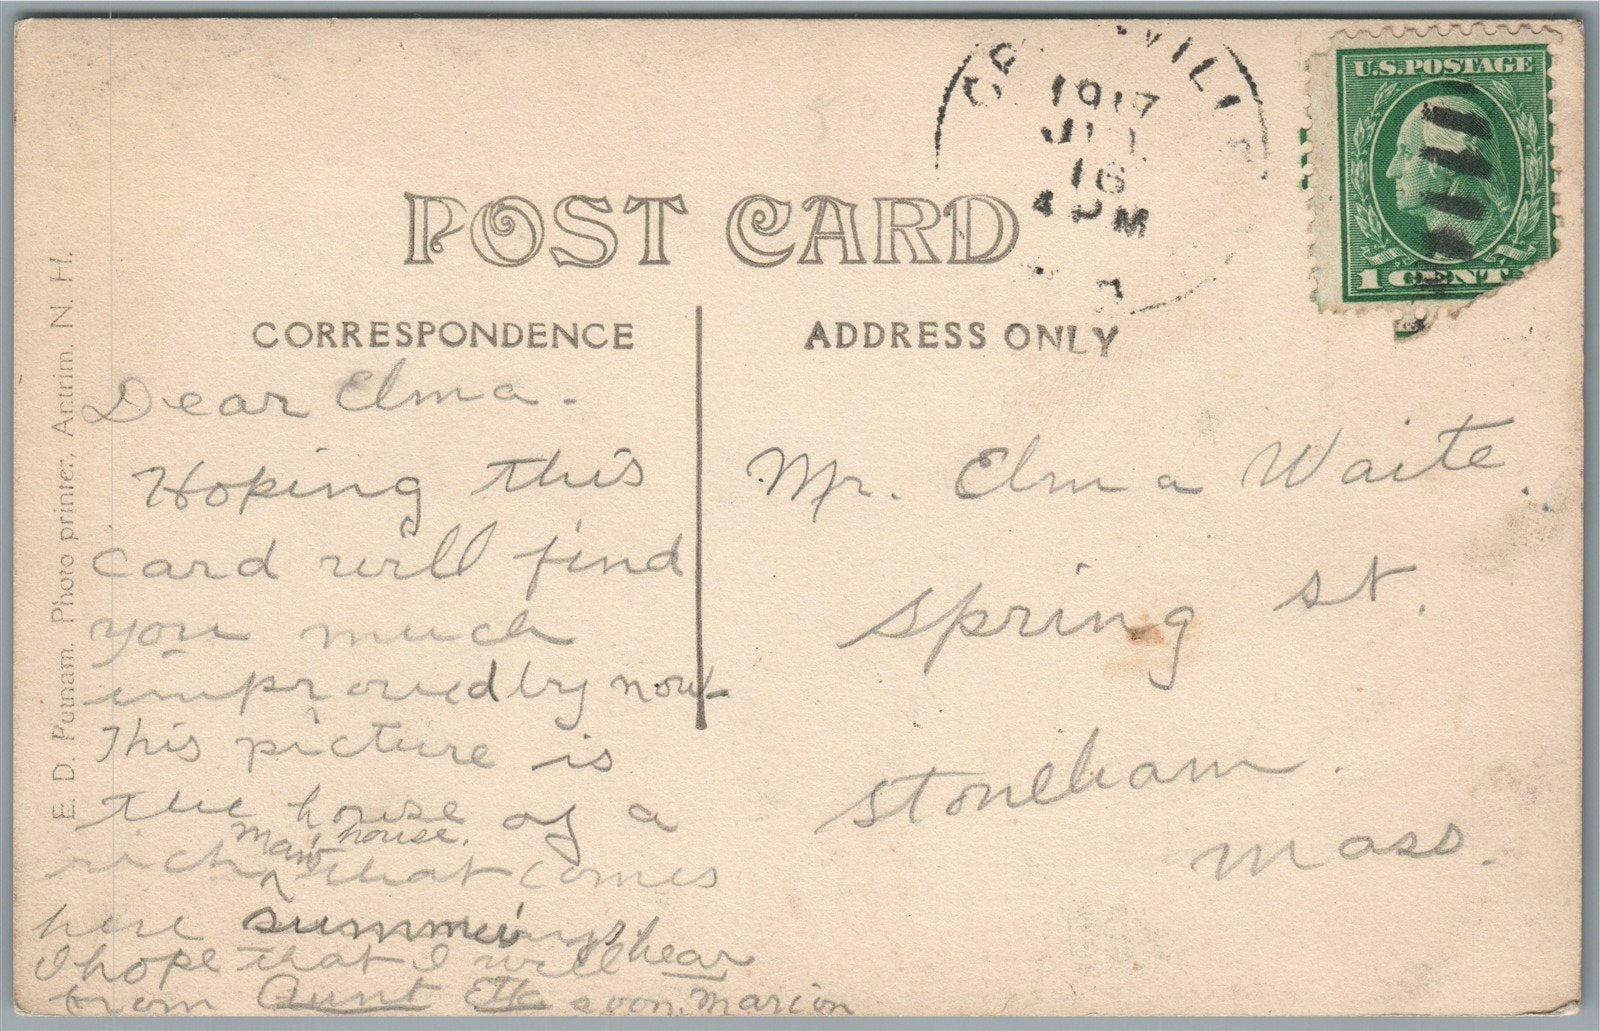 1917
16
M
U.S.POSTAGE
1 CENT
POST CARD
CORRESPONDENCE
ADDRESS ONLY
E. D. Putnam, Photo printer, Antrim, N. H.
Dear Elma.
Hoping this
card will find
you much
improved by now
This picture is
the house of a
rich man's house. that comes
here summers
I hope that I will hear
from Aunt soon. Marion
Mr. Elma Waite.
Spring st.
Stoneham.
Mass.